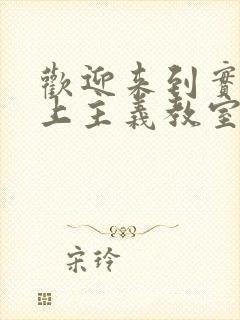 歡迎來到實
上主義教室
宋玲